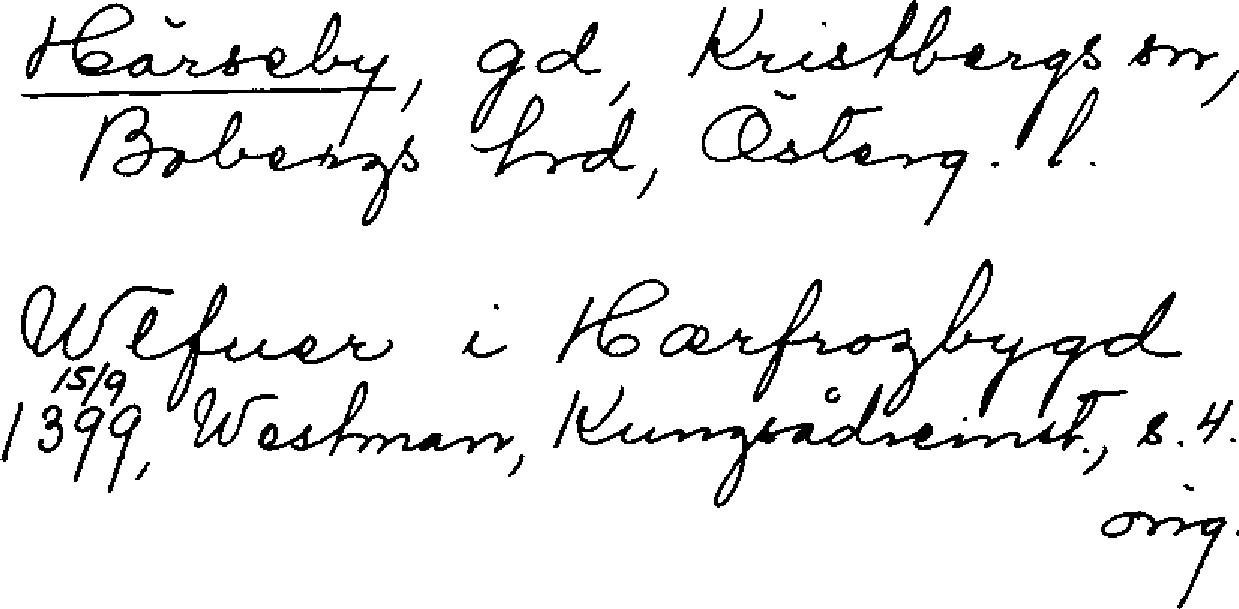 Härseby, gd, Kristbergs sn,
Bobergs hrd, Österg. l.
Vlfuer i Hærfrozbygd
15/9
1399, Westman, Kungsådreinst., s. 4.
orig.